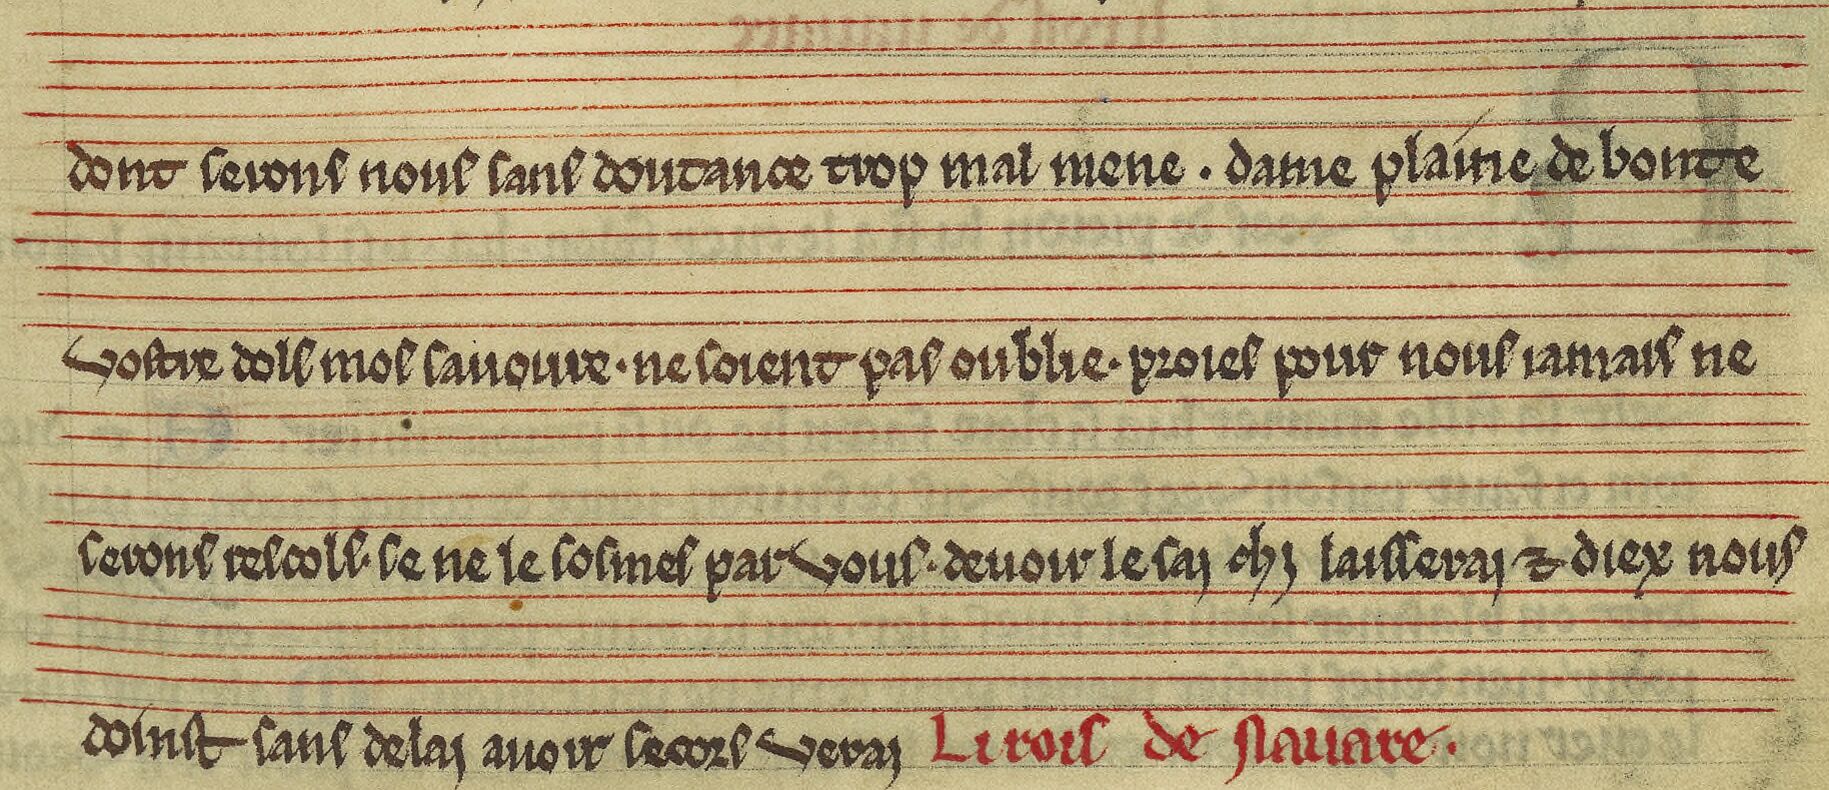 dont serons nous sans doutance trop mal mene . dame plaine de bonte
vostre dols mos sauoure . ne soient pas oublie . proies pour nous iamais ne
serons rescols . se ne le sosmes par vous . deuoir le sai chi laisserai ⁊ diex nous
doinst sans delai auoir secors verai Li rois de nauare .